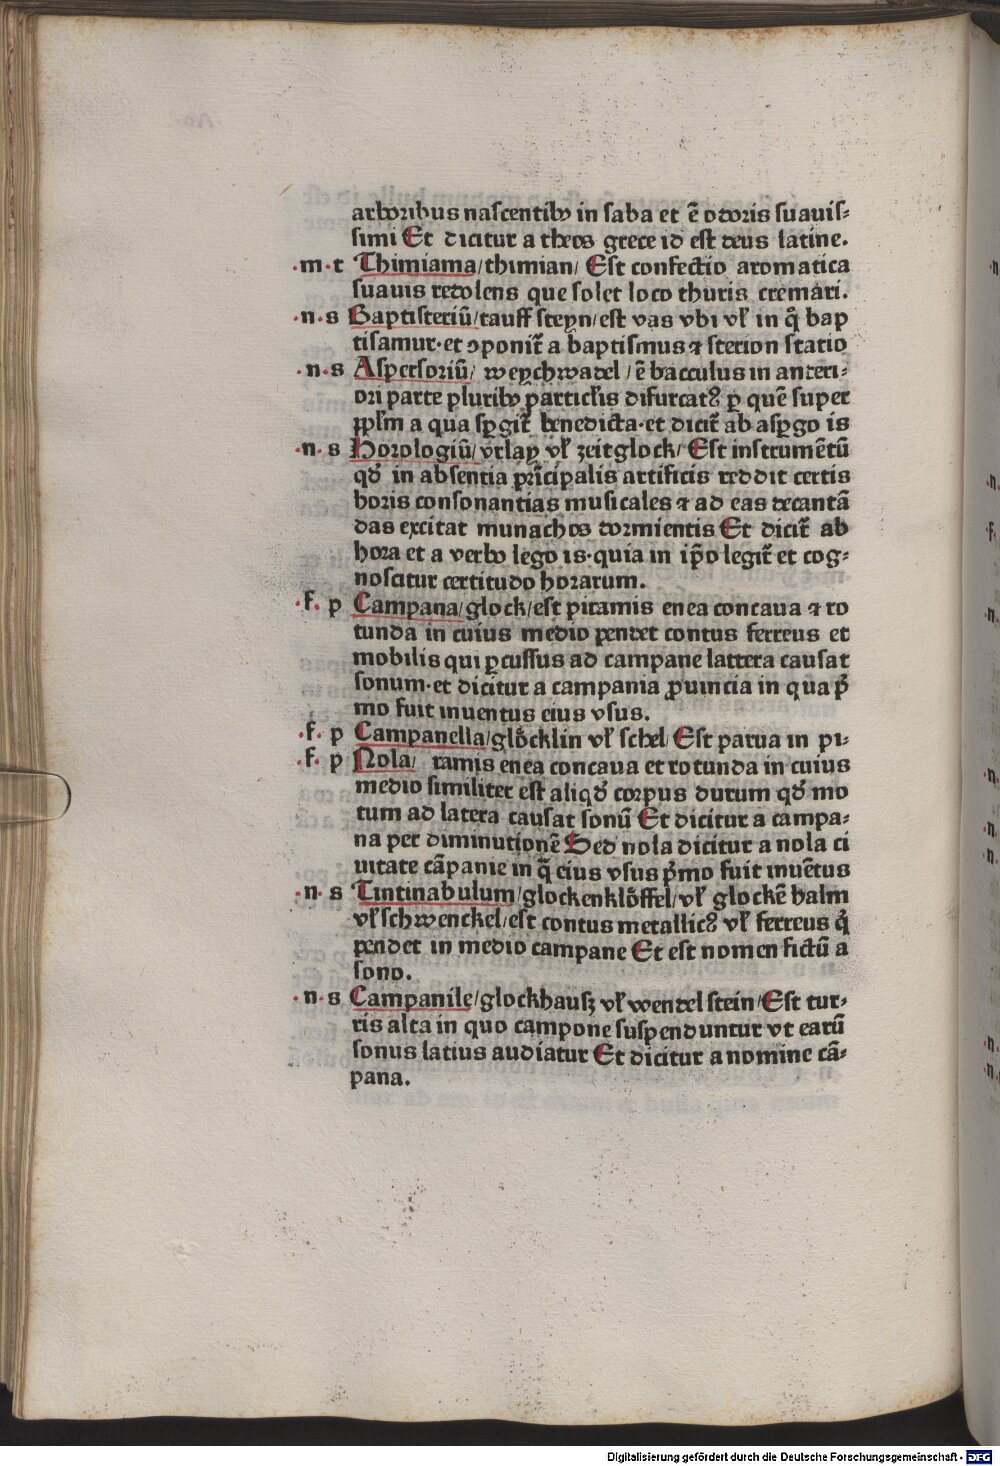 arboribus nascentibꝰ in saba et ē odoris suauis-
simi Et dicitur a theos grece id est deus latine.
·m·t Thimiama/thimian/ Est confectio aromatica
suauis redolens que solet loco thuris cremari.
·n·s Baptisteriū/tauff steyn/est vas vbi vl̄ in q̄ bap
tisamur·et ꝯponit̄ a baptismus ⁊ sterion statio
·n·s Aspersoriū/ weychwadel/ē bacculus in anteri-
ori parte pluribꝰ particl̄is difurcatꝰ ꝑ quē super
ppl̄m a qua spgit̄ benedicta·et dicit̄ ab aspgo is
·n·s Horologiū/vrlay vl̄ zeitglock/Est instrumētū
qd̄ in absentia pr̄icipalis artificis reddit certis
horis consonantias musicales ⁊ ad eas decantā
das excitat munachos dormientis Et dicit̄ ab
hora et a verbo lego is·quia in ip̄o legit̄ et cog-
noscitur certitudo horarum.
·f·p Campana/glock/est piramis enea concaua ⁊ ro
tunda in cuius medio pendet contus ferreus et
mobilis qui ꝑcussus ad campane lattera causat
sonum·et dicitur a campania ꝓuincia in qua p̄
mo fuit inuentus eius vsus.
·f·p Campanella/glöcklin vl̄ schel/Est parua in pi-
·f·p Nola/ ramis enea concaua et rotunda in cuius
medio similiter est aliqd̄ corpus durum qd̄ mo
tum ad latera causat sonū Et dicitur a campa-
na per diminutionē Sed nola dicitur a nola ci
uitate cāpanie in q̄ eius vsus p̄mo fuit inuētus
·n·s Tintinabulum/glockenklöffel/vl̄ glockē halm
vl̄ schwenckel/est contus metallicꝰ vl̄ ferreus q̇
pendet in medio campane Et est nomen fictū a
sono.
·n·s Campanile/glockhausz vl̄ wendel stein/Est tur-
ris alta in quo campone suspenduntur vt earū
sonus latius audiatur Et dicitur a nomine cā-
pana.
Digitalisierung gefördert durch die Deutsche Forschungsgemeinschaft - DFG